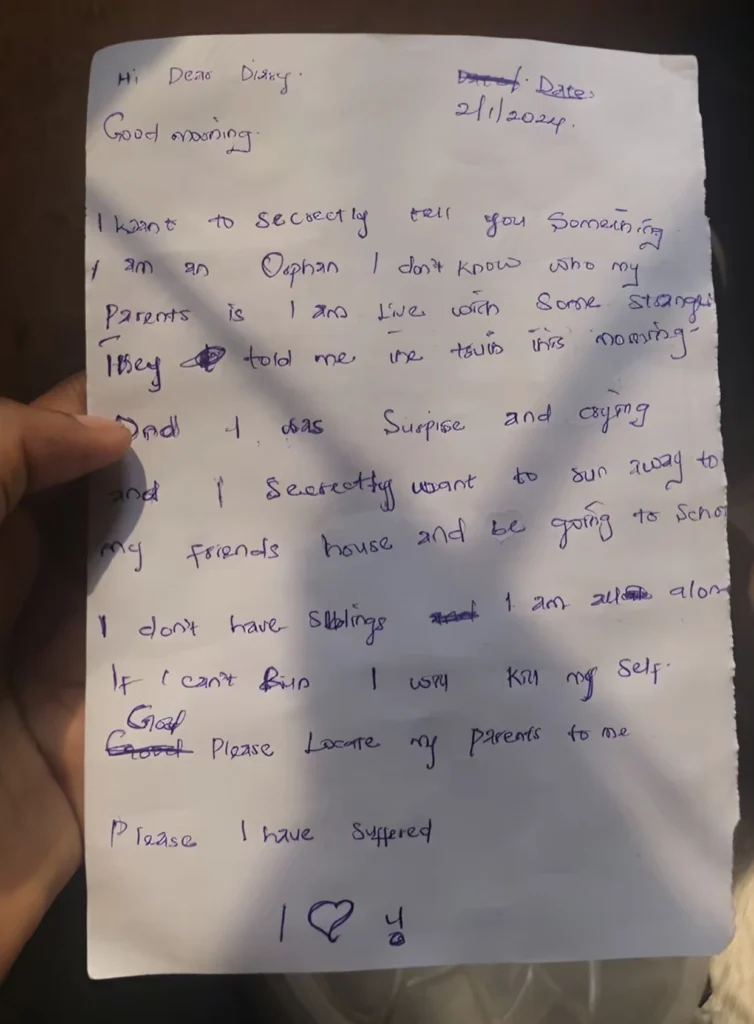 Hi Dear Diary. Date:
2/1/2024.
Good morning.
I want to secrectly tell you Something
I am an Orphan I don't know who my
Parents is I am Live with Some strange
They told me the truth this morning-
And I was Surpise and crying
and I Secrectly want to run away to
my friends house and be going to Scho
I don't have Siblings I am all alon
If I can't Run I will Kill my Self.
God
Please Locate my parents to me
Please I have Suffered
I ♡ y